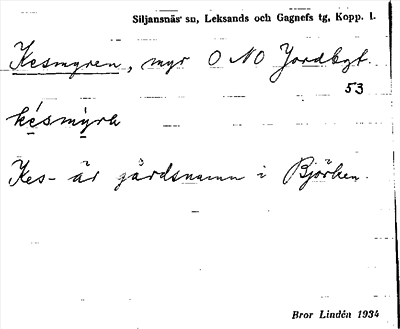 Siljansnäs sn, Leksands och Gagnefs tg, Kopp. l.
Kesmyren, myr O NO Jordbgt.
53
késmýra
Kes- är gårdsnamn i Björken.
Bror Lindén 1934